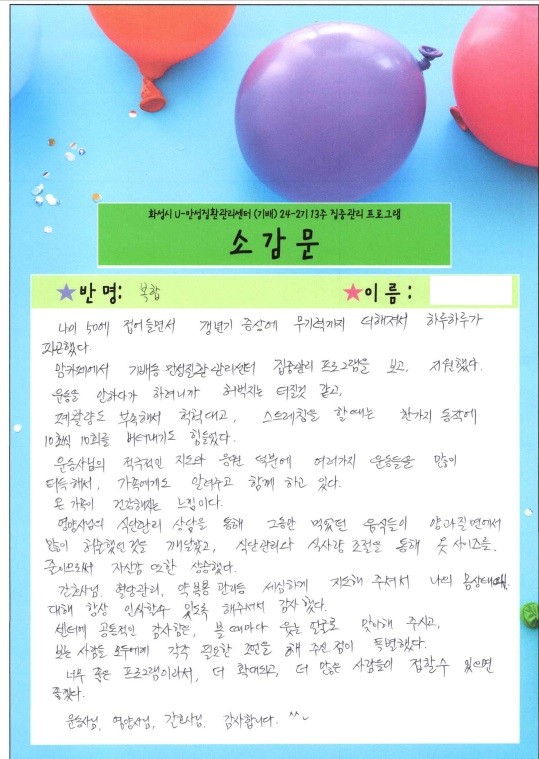 화성시 U-만성질환관리센터 (기배) 24-2기 13주 집중관리 프로그램
소감문
★반 명: 복합
★이 름 :
나이 50에 접어들면서 갱년기 증상에 무기력까지 더해져서 하루하루가
피곤했다.
맘카페에서 기배동 만성질환관리센터 집중관리 프로그램을 보고, 지원했다.
운동을 안하다가 하려니까 허벅지는 터질것 같고,
폐활량도 부족해서 헉헉대고, 스트레칭을 할때는 한가지 동작에
10초씩 10회를 버텨내기도 힘들었다.
운동사님의 적극적인 지도와 응원 덕분에 여러가지 운동들을 많이
터득해서, 가족에게도 알려주고 함께 하고 있다.
온 가족이 건강해지는 느낌이다.
영양사님의 식단관리 상담을 통해 그동안 먹었던 음식들이 양과 질면에서
많이 허술했던것을 깨달았고, 식단관리와 식사량 조절을 통해 옷 사이즈를
줄이므로써 자신감 또한 상승했다.
간호사님. 혈당관리, 약 복용 관리등 세심하게 지도해 주셔서 나의 몸상태에
대해 항상 인식할수 있도록 해주셔서 감사했다.
센터에 공통적인 감사함은, 볼 때마다 웃는 얼굴로 맞이해 주시고,
보는 사람들 모두에게 각각 필요한 조언을 해 주신 점이 특별했다.
너무 좋은 프로그램이라서, 더 확대되고, 더 많은 사람들이 접할수 있으면
좋겠다.
운동사님, 영양사님, 간호사님. 감사합니다. ^^~